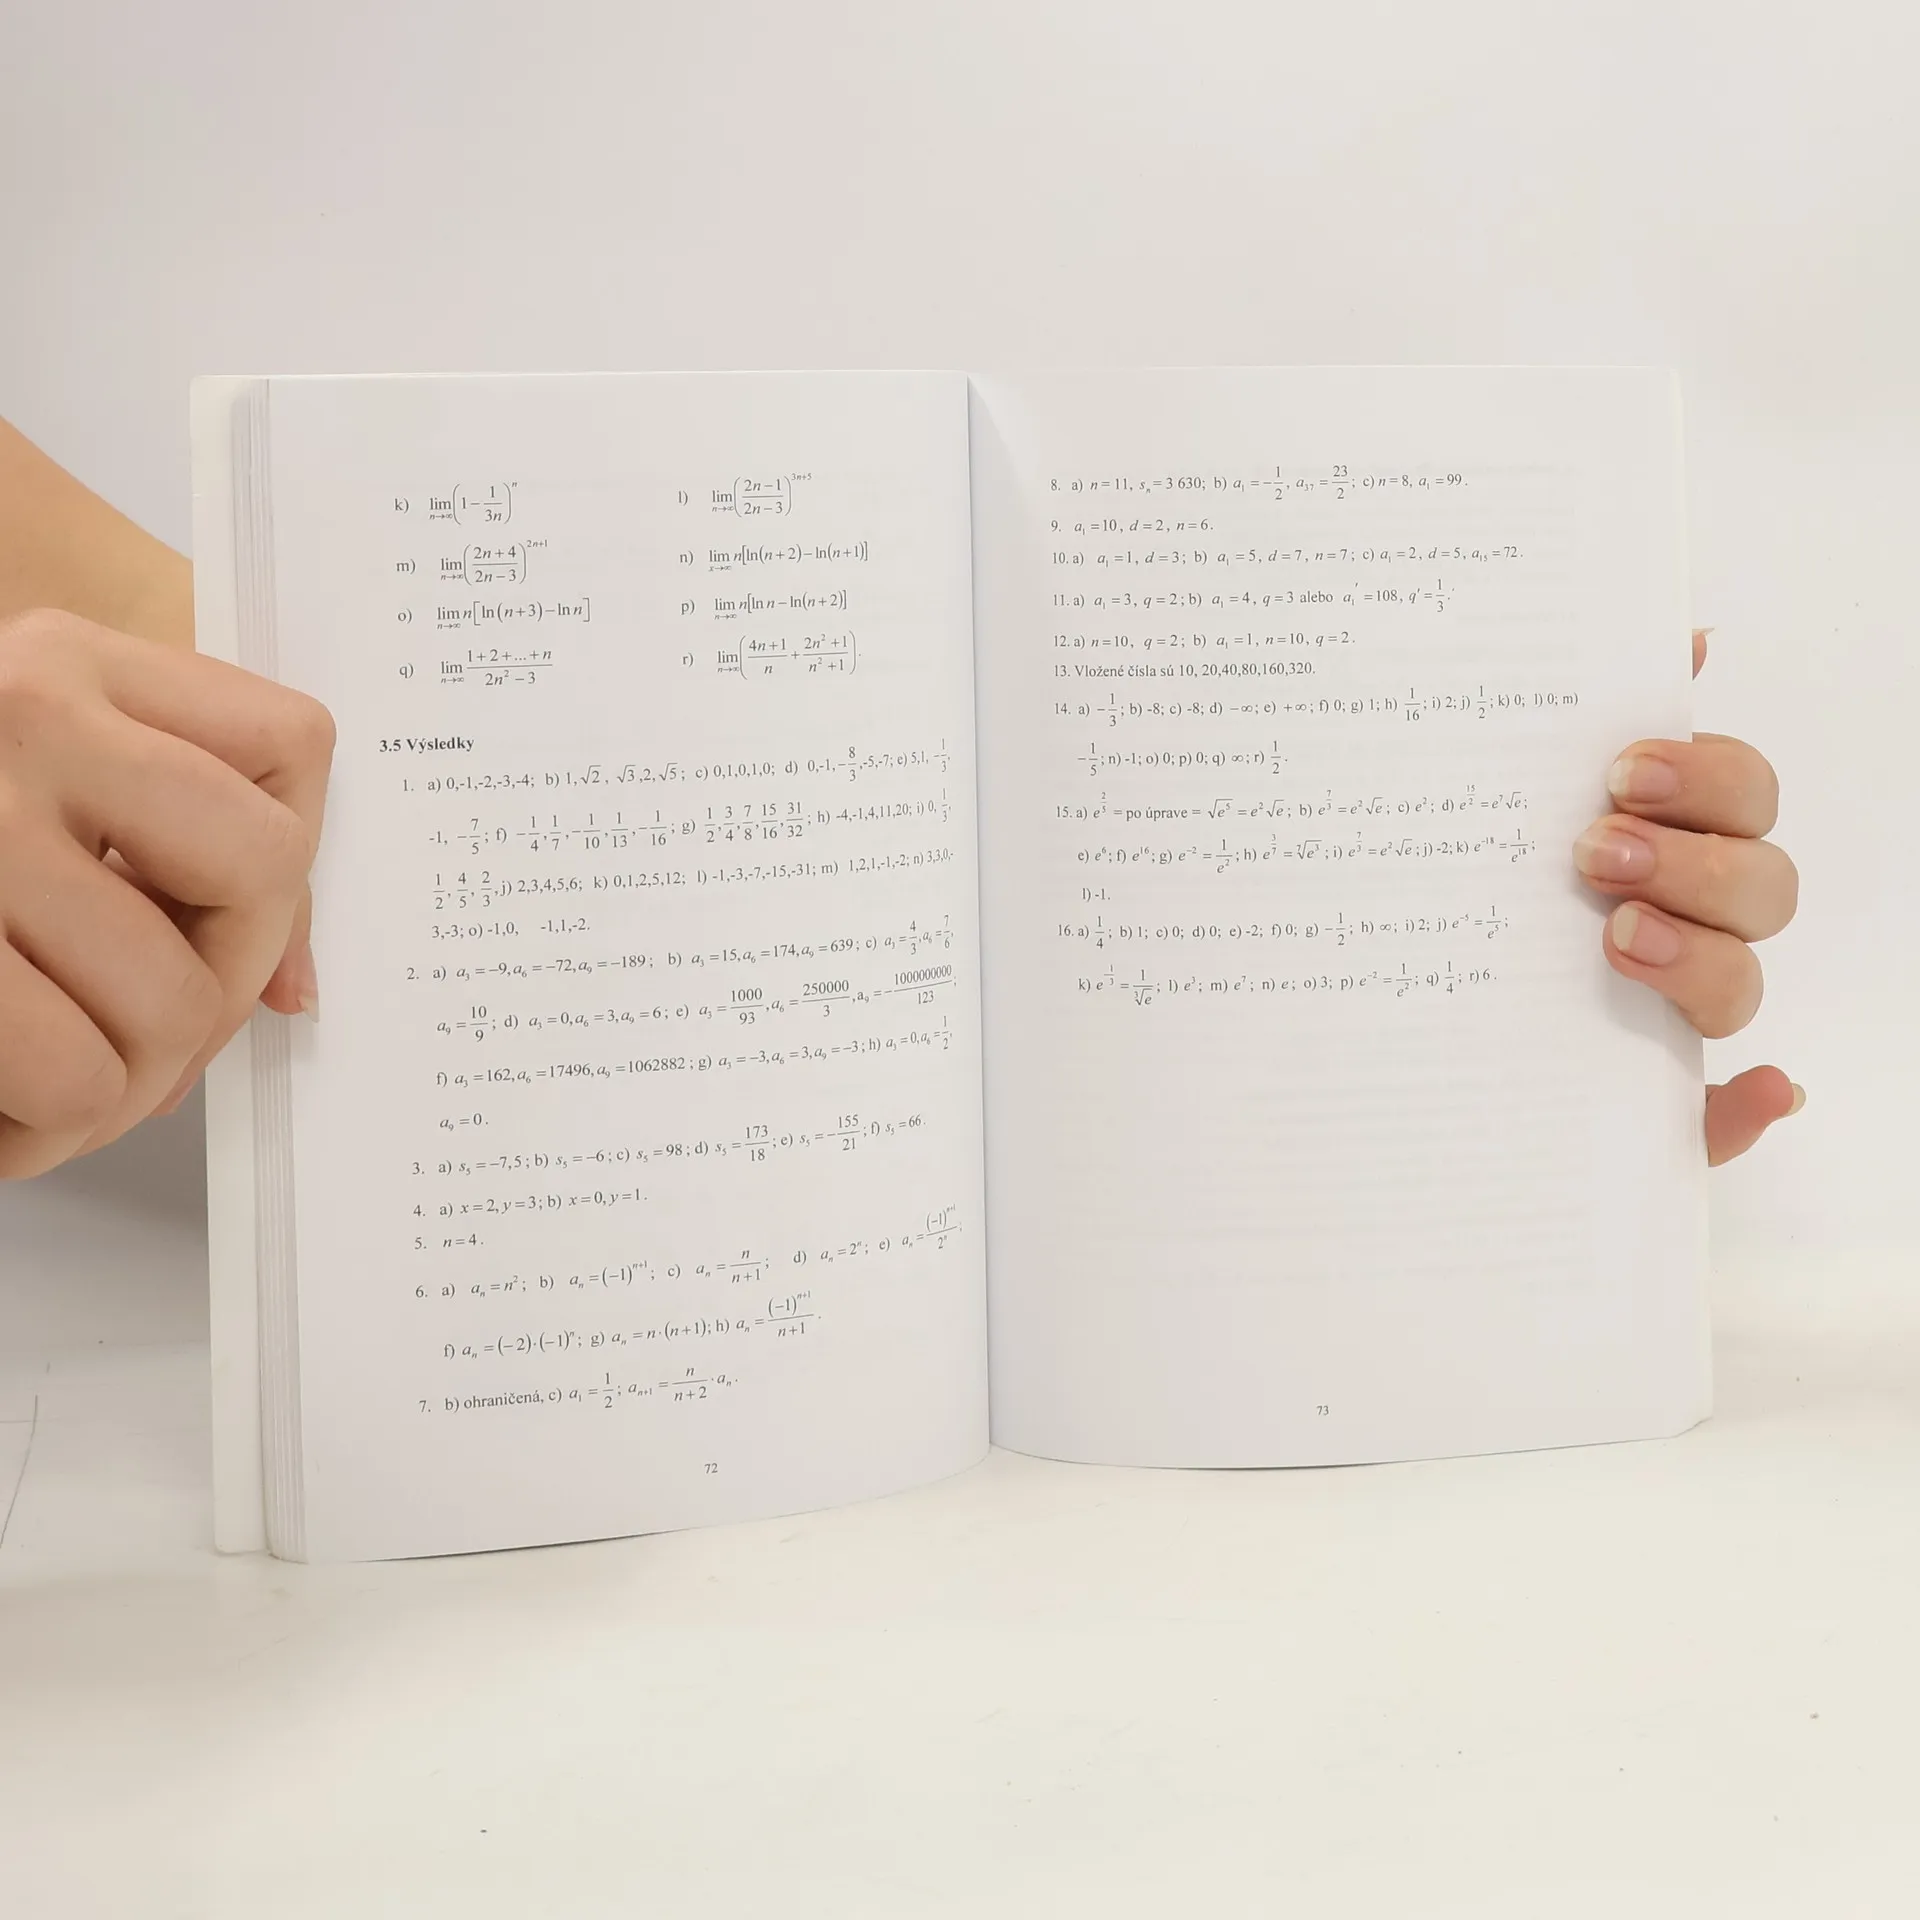 k) lim n→∞ (1 − 1/(3n))^n l) lim n→∞ ((2n−1)/(2n−3))^(3n+5)
m) lim n→∞ ((2n+4)/(2n−3))^(2n+1) n) lim x→∞ n[ln(n+2)−ln(n+1)]
o) lim n→∞ n[ln(n+3)−ln n] p) lim n→∞ n[ln n−ln(n+2)]
q) lim n→∞ (1+2+...+n)/(2n²−3) r) lim n→∞ ((4n+1)/n + (2n²+1)/(n²+1)).
3.5 Výsledky
1. a) 0,-1,-2,-3,-4; b) 1, √2, √3, 2, √5; c) 0,1,0,1,0; d) 0,-1,−8/3,-5,-7; e) 5,1, −1/3,
-1, −7/5; f) −1/4, 1/7, −1/10, 1/13, −1/16; g) 1/2, 3/4, 7/8, 15/16, 31/32; h) -4,-1,4,11,20; i) 0, 1/3,
1/2, 4/5, 2/3, j) 2,3,4,5,6; k) 0,1,2,5,12; l) -1,-3,-7,-15,-31; m) 1,2,1,-1,-2; n) 3,3,0,-
3,-3; o) -1,0, -1,1,-2.
2. a) a₃ = −9, a₆ = −72, a₉ = −189; b) a₃ = 15, a₆ = 174, a₉ = 639; c) a₃ = 4/3, a₆ = 7/6,
a₉ = 10/9; d) a₃ = 0, a₆ = 3, a₉ = 6; e) a₃ = 1000/93, a₆ = 250000/3, a₉ = −1000000000/123;
f) a₃ = 162, a₆ = 17496, a₉ = 1062882; g) a₃ = −3, a₆ = 3, a₉ = −3; h) a₃ = 0, a₆ = 1/2,
a₉ = 0.
3. a) s₅ = −7,5; b) s₅ = −6; c) s₅ = 98; d) s₅ = 173/18; e) s₅ = −155/21; f) s₅ = 66.
4. a) x = 2, y = 3; b) x = 0, y = 1.
5. n = 4.
6. a) aₙ = n²; b) aₙ = (−1)^(n+1); c) aₙ = n/(n+1); d) aₙ = 2ⁿ; e) aₙ = (−1)^(n+1)/2ⁿ;
f) aₙ = (−2)·(−1)ⁿ; g) aₙ = n·(n+1); h) aₙ = (−1)^(n+1)/(n+1).
7. b) ohraničená, c) a₁ = 1/2; aₙ₊₁ = n/(n+2)·aₙ.
72
8. a) n = 11, sₙ = 3 630; b) a₁ = −1/2, a₃₇ = 23/2; c) n = 8, a₁ = 99.
9. a₁ = 10, d = 2, n = 6.
10. a) a₁ = 1, d = 3; b) a₁ = 5, d = 7, n = 7; c) a₁ = 2, d = 5, a₁₅ = 72.
11. a) a₁ = 3, q = 2; b) a₁ = 4, q = 3 alebo a₁′ = 108, q′ = 1/3.
12. a) n = 10, q = 2; b) a₁ = 1, n = 10, q = 2.
13. Vložené čísla sú 10, 20,40,80,160,320.
14. a) −1/3; b) -8; c) -8; d) −∞; e) +∞; f) 0; g) 1; h) 1/16; i) 2; j) 1/2; k) 0; l) 0; m)
−1/5; n) -1; o) 0; p) 0; q) ∞; r) 1/2.
15. a) e^(2/5) = po úprave = √e⁵ = e²√e; b) e^(7/3) = e²√e; c) e²; d) e^(15/2) = e⁷√e;
e) e⁶; f) e¹⁶; g) e⁻² = 1/e²; h) e^(3/7) = ⁷√e³; i) e^(7/3) = e²√e; j) -2; k) e⁻¹⁸ = 1/e¹⁸;
l) -1.
16. a) 1/4; b) 1; c) 0; d) 0; e) -2; f) 0; g) −1/2; h) ∞; i) 2; j) e⁻⁵ = 1/e⁵;
k) e^(−1/3) = 1/³√e; l) e³; m) e⁷; n) e; o) 3; p) e⁻² = 1/e²; q) 1/4; r) 6.
73